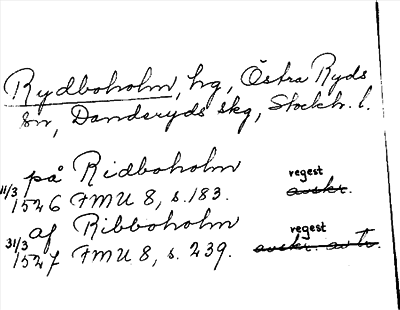 Rydboholm, hg, Östra Ryds
sn, Danderyds skg, Stockh. l.
på Ridboholm
11/3 1526 FMU 8, s. 183. regest avskr.
af Ribboholm
31/3 1527 FMU 8, s. 239. regest avskr. av tr.